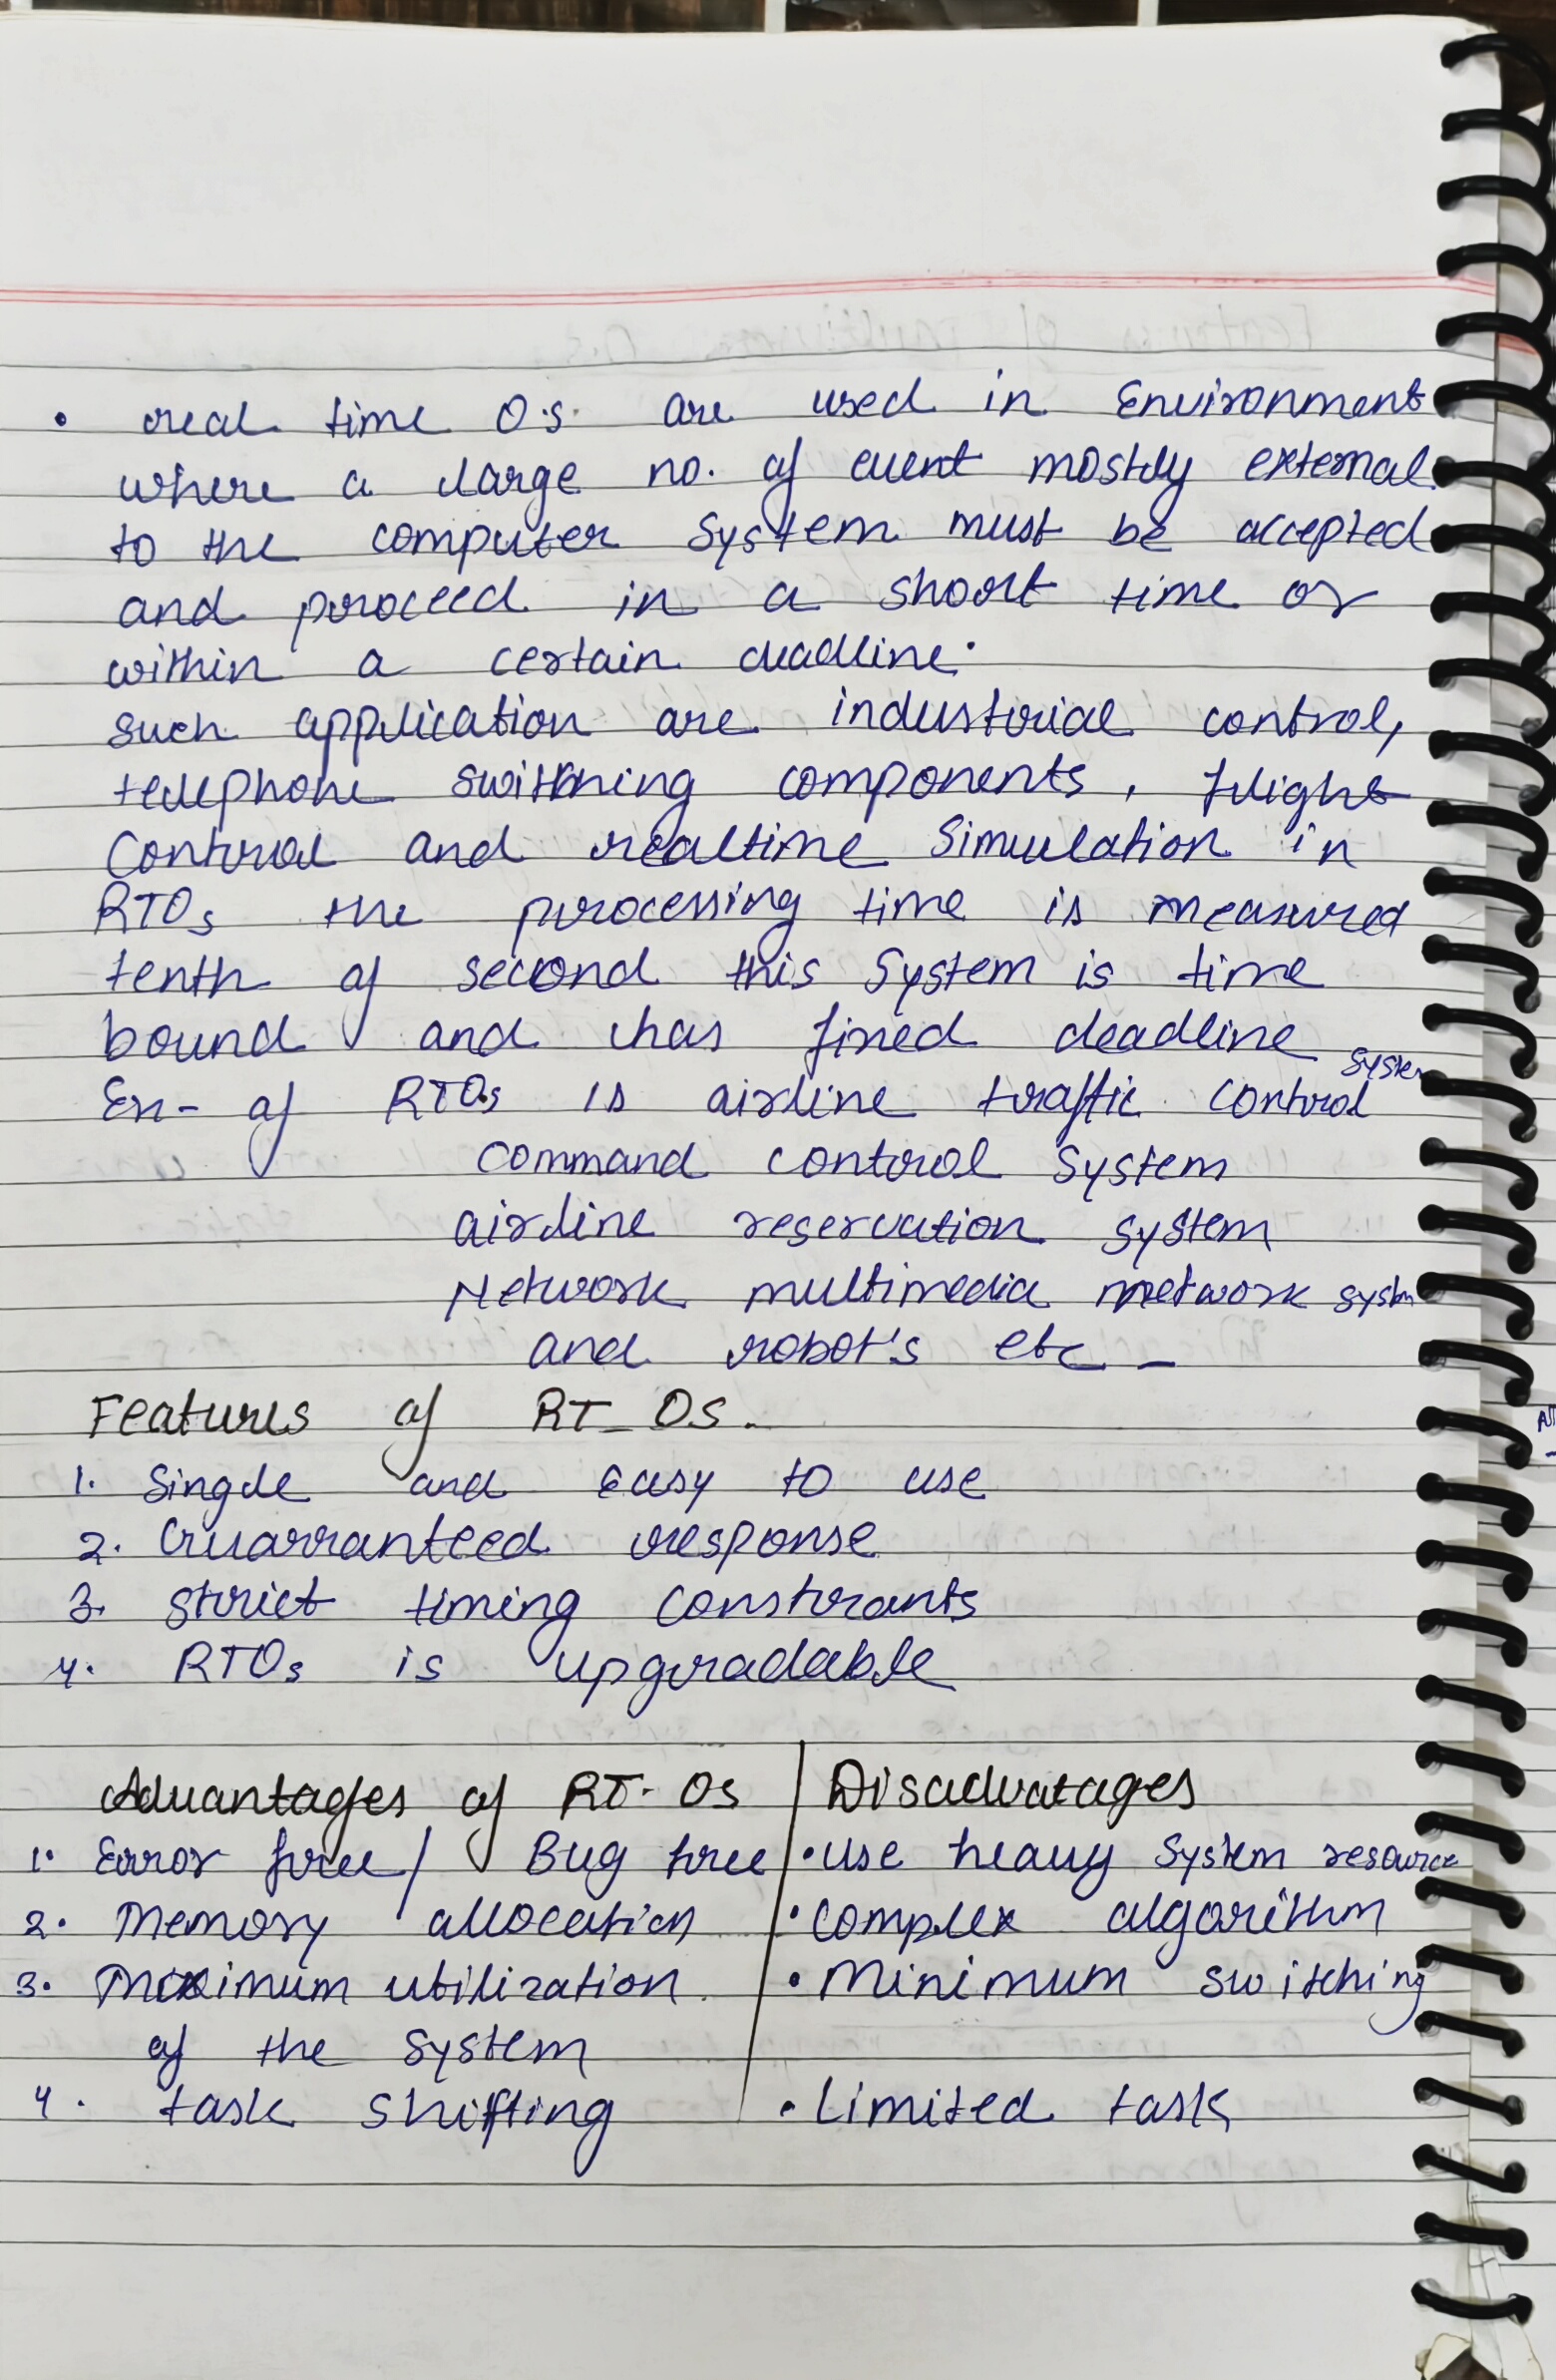 • real time O.S. are used in Environment
where a large no. of event mostly external
to the computer system must be accepted
and proceed in a short time or
within a certain deadline.
such application are industrial control,
telephone switching components, flight
Control and realtime Simulation in
RTOs the processing time is measured
tenth of second this System is time
bound and has fixed deadline
Ex- of RTOs is airline traffic control system
command control system
airline reservation system
Network multimedia network system
and robot's etc -
Features of RT-OS.
1. Single and Easy to use
2. Guarranteed response
3. strict timing constrants
4. RTOs is upgradable
Advantages of RT-Os | Disadvatages
1. Error free / Bug free | • use heavy System resource
2. Memory allocation | • complex algorithm
3. Maximum utilization | • Minimum switching
of the system
4. task shifting | • Limited task